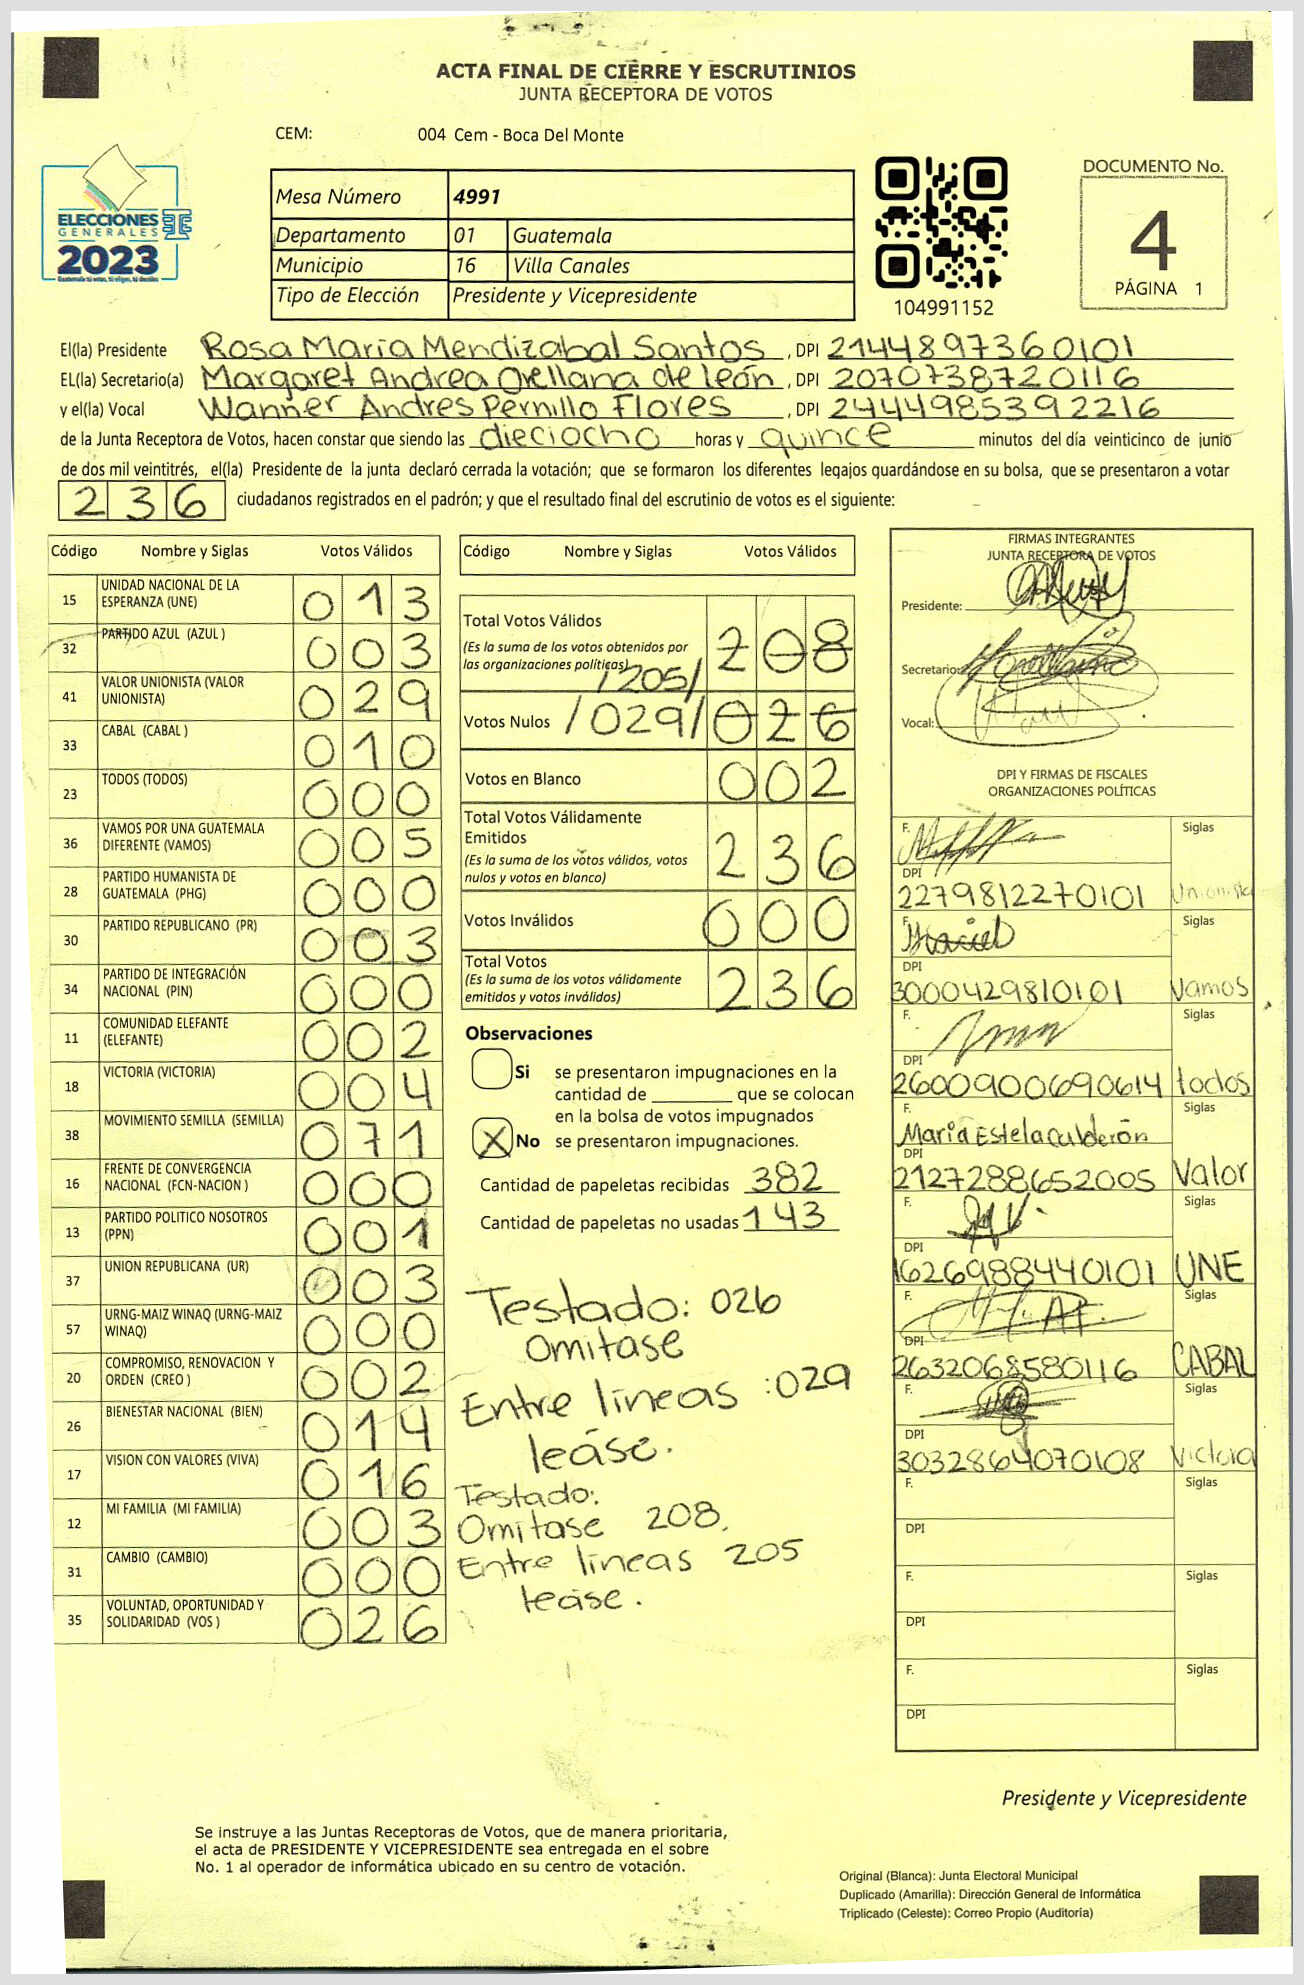 ACTA FINAL DE CIERRE Y ESCRUTINIOS
JUNTA RECEPTORA DE VOTOS
CEM: 004 Cem - Boca Del Monte
ELECCIONES
GENERALES
2023
Mesa Número 4991
Departamento 01 Guatemala
Municipio 16 Villa Canales
Tipo de Elección Presidente y Vicepresidente
104991152
DOCUMENTO No.
4
PÁGINA 1
El(la) Presidente Rosa María Mendizabal Santos, DPI 2144897360101
EL(la) Secretario(a) Margaret Andrea Orellana de león, DPI 2070738720116
y el(la) Vocal Wanner Andres Pernillo Flores, DPI 2444985392216
de la Junta Receptora de Votos, hacen constar que siendo las dieciocho horas y quince minutos del día veinticinco de junio
de dos mil veintitrés, el(la) Presidente de la junta declaró cerrada la votación; que se formaron los diferentes legajos guardándose en su bolsa, que se presentaron a votar
236 ciudadanos registrados en el padrón; y que el resultado final del escrutinio de votos es el siguiente:
Código Nombre y Siglas Votos Válidos
15 UNIDAD NACIONAL DE LA ESPERANZA (UNE) 013
32 PARTIDO AZUL (AZUL ) 003
41 VALOR UNIONISTA (VALOR UNIONISTA) 029
33 CABAL (CABAL ) 010
23 TODOS (TODOS) 000
36 VAMOS POR UNA GUATEMALA DIFERENTE (VAMOS) 005
28 PARTIDO HUMANISTA DE GUATEMALA (PHG) 000
30 PARTIDO REPUBLICANO (PR) 003
34 PARTIDO DE INTEGRACIÓN NACIONAL (PIN) 000
11 COMUNIDAD ELEFANTE (ELEFANTE) 002
18 VICTORIA (VICTORIA) 004
38 MOVIMIENTO SEMILLA (SEMILLA) 071
16 FRENTE DE CONVERGENCIA NACIONAL (FCN-NACION ) 000
13 PARTIDO POLITICO NOSOTROS (PPN) 001
37 UNION REPUBLICANA (UR) 003
57 URNG-MAIZ WINAQ (URNG-MAIZ WINAQ) 000
20 COMPROMISO, RENOVACION Y ORDEN (CREO ) 002
26 BIENESTAR NACIONAL (BIEN) 014
17 VISION CON VALORES (VIVA) 016
12 MI FAMILIA (MI FAMILIA) 003
31 CAMBIO (CAMBIO) 000
35 VOLUNTAD, OPORTUNIDAD Y SOLIDARIDAD (VOS ) 026
Código Nombre y Siglas Votos Válidos
Total Votos Válidos
(Es la suma de los votos obtenidos por
las organizaciones políticas) /205/ 208
Votos Nulos /029/ 026
Votos en Blanco 002
Total Votos Válidamente
Emitidos
(Es la suma de los votos válidos, votos
nulos y votos en blanco) 236
Votos Inválidos 000
Total Votos
(Es la suma de los votos válidamente
emitidos y votos inválidos) 236
Observaciones
Si se presentaron impugnaciones en la
cantidad de ________ que se colocan
en la bolsa de votos impugnados
X No se presentaron impugnaciones.
Cantidad de papeletas recibidas 382
Cantidad de papeletas no usadas 143
Testado: 026
Omitase
Entre líneas :029
leáse.
Testado:
Omitase 208,
Entre líneas 205
leáse.
FIRMAS INTEGRANTES
JUNTA RECEPTORA DE VOTOS
Presidente:
Secretario:
Vocal:
DPI Y FIRMAS DE FISCALES
ORGANIZACIONES POLÍTICAS
F. Siglas
DPI
2279812270101 Unionista
F. Siglas
DPI
3000429810101 Vamos
F. Siglas
DPI
2600900690614 todos
F. Siglas
Maria Estela Calderón
DPI
2127288652005 Valor
F. Siglas
DPI
1626988440101 UNE
F. Siglas
DPI
2632068580116 CABAL
F. Siglas
DPI
3032864070108 Victoria
F. Siglas
DPI
F. Siglas
DPI
F. Siglas
DPI
Presidente y Vicepresidente
Se instruye a las Juntas Receptoras de Votos, que de manera prioritaria,
el acta de PRESIDENTE Y VICEPRESIDENTE sea entregada en el sobre
No. 1 al operador de informática ubicado en su centro de votación.
Original (Blanca): Junta Electoral Municipal
Duplicado (Amarilla): Dirección General de Informática
Triplicado (Celeste): Correo Propio (Auditoría)